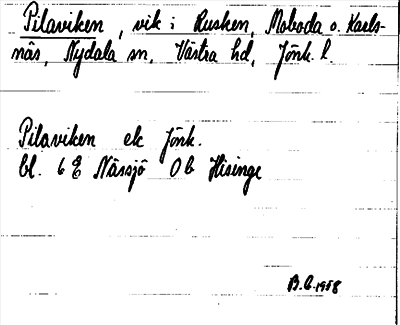 Pilaviken, vik i Rusken, Moboda o. Karls-
näs, Nydala sn, Västra hd, Jönk. l.
Pilaviken ek Jönk.
bl. 6 E Nässjö Ob Hisinge
B.C. 1958